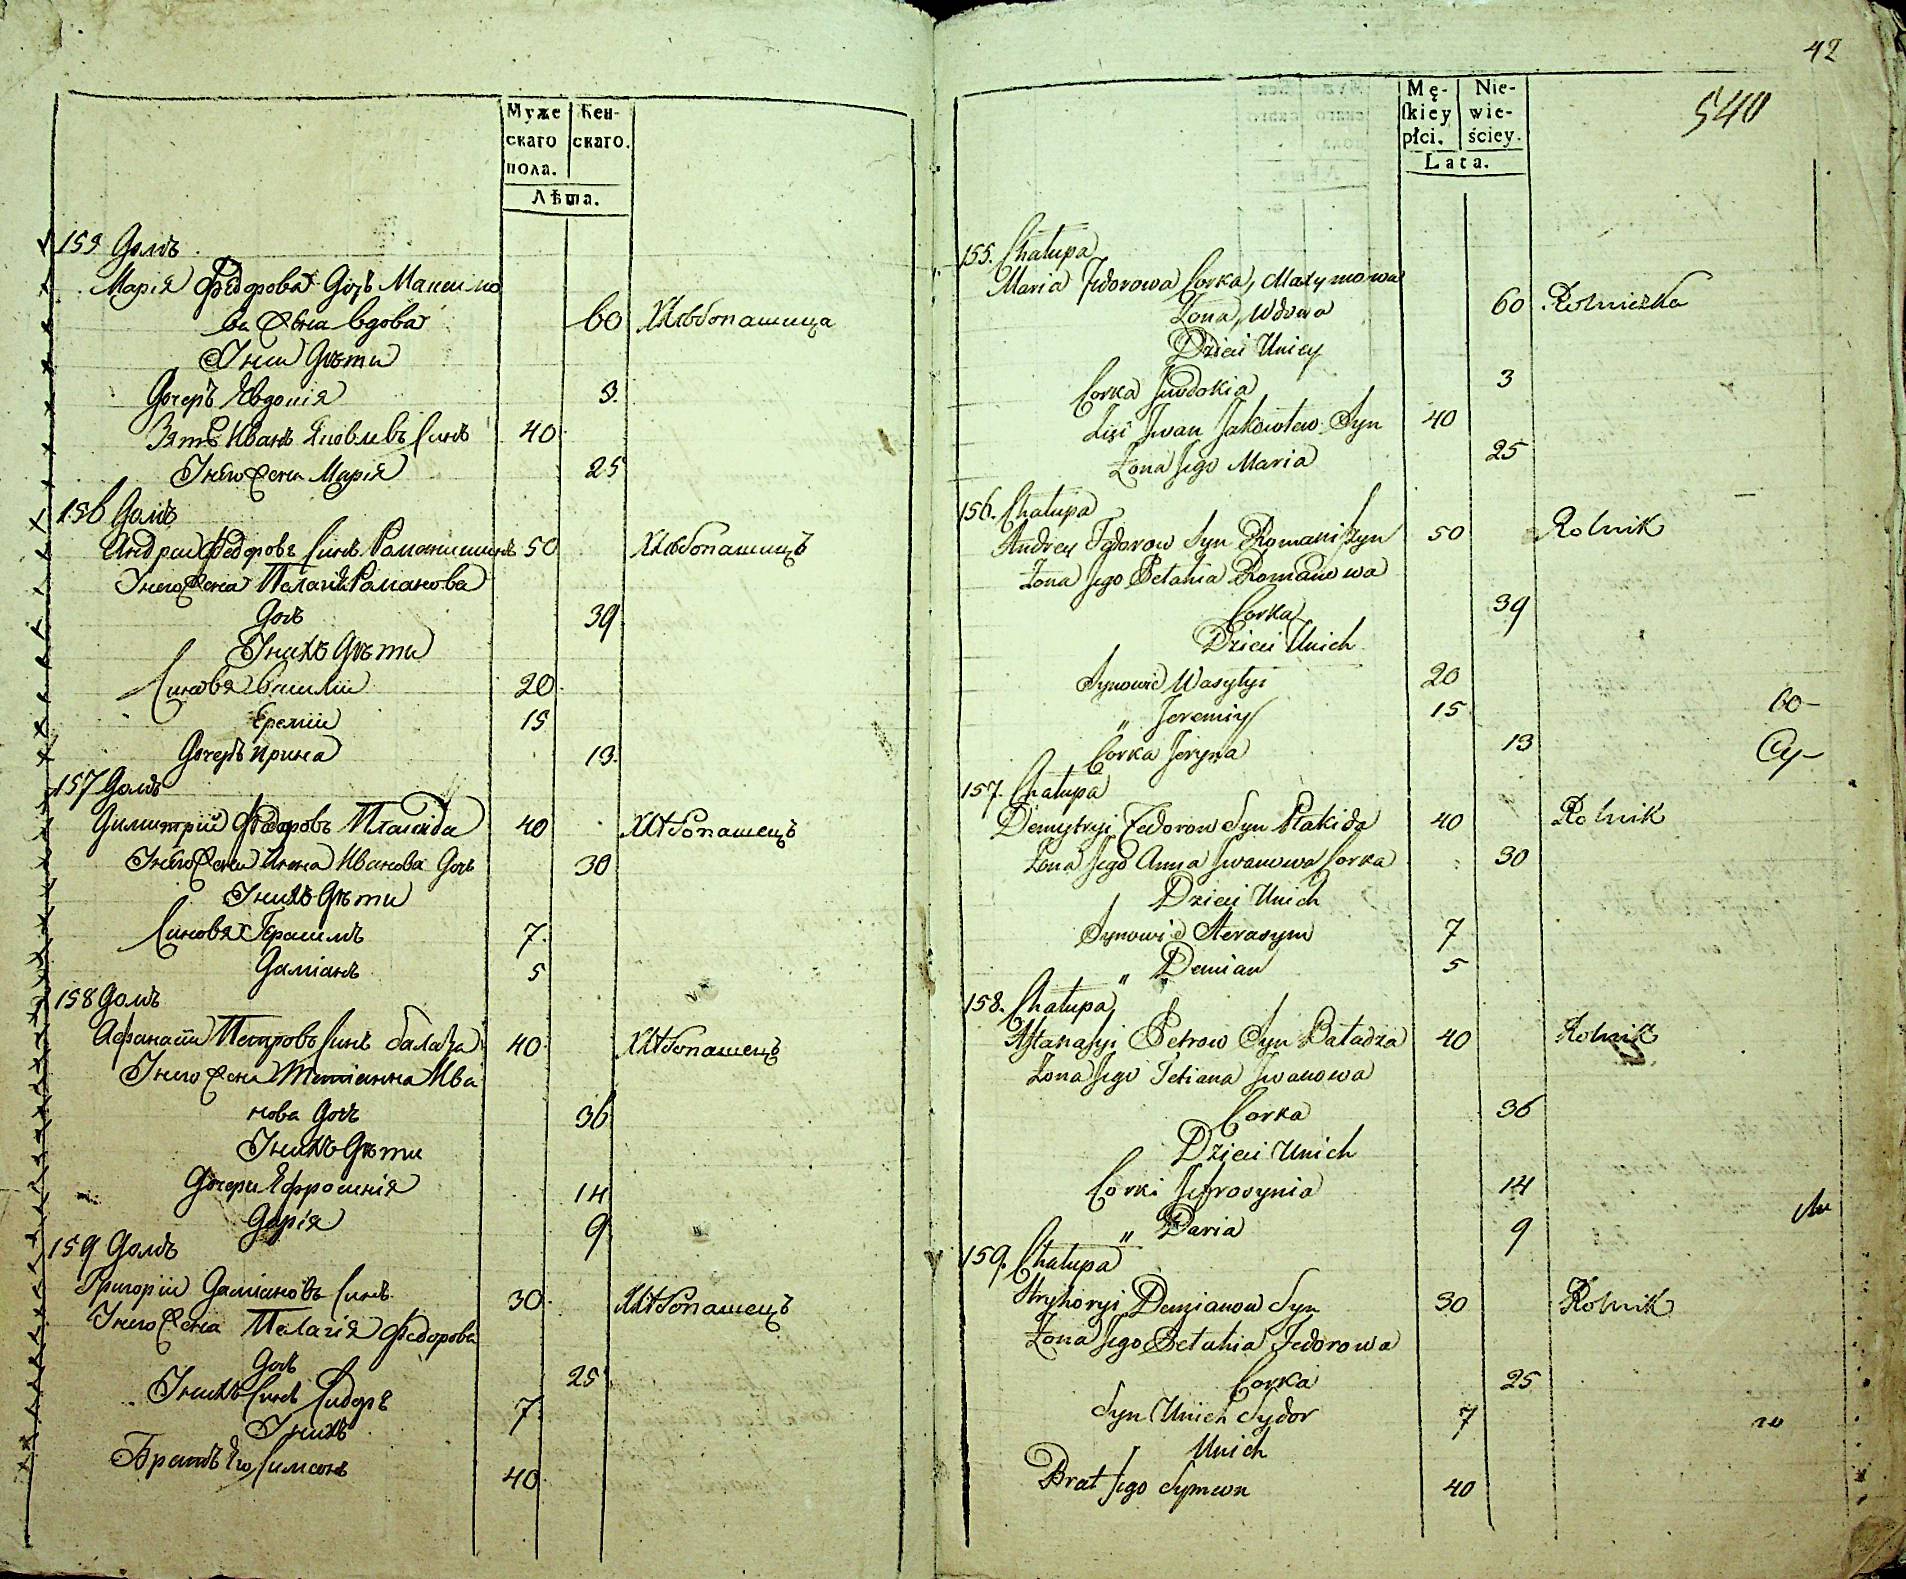 Муже
скаго
пола.
Жен-
скаго.
Лѣта.
155 Домъ
Марія Федорова Дочь Максимо
ва Жена вдова 60 Хлѣбопашица
У нии Дѣти
Дочеръ Явдокія 3.
Зять Иванъ Яковлевъ Синъ 40
У него Жена Марія 25
156 Домъ
Андрей Федоровъ Синъ Романишинъ 50 Хлѣбопашецъ
У него Жена Пелагія Романова
Дочь 39
У нихъ Дѣти
Синовя Василій 20
Еремій 15
Дочеръ Ирина 13.
157 Домъ
Димитрій Федоровъ Плакида 40 Хлѣбопашецъ
У него Жена Анна Иванова Дочь 30
У нихъ Дѣти
Синовя Герасимъ 7.
Даміанъ 5
158 Домъ
Афанасій Петровъ Синъ Балаза 40 Хлѣбопашецъ
У него Жена Тетіанна Ива
нова Дочь 36
У нихъ Дѣти
Дочери Яфросинія 14
Дарія 9
159 Домъ
Григорій Даміановъ Синъ 30 Хлѣбопашецъ
У него Жена Пелагія Федорова
Дочь 25
У нихъ Синъ Сидоръ 7
У нихъ
Братъ Его Симеонъ 40
42
540
Mę-
skiey
płci.
Nie-
wie-
ściey.
Lata.
155. Chałupa
Maria Fedorowa Corka, Maxymowa
Zona, Wdowa 60 Rolniczka
Dzieci Uniey
Corka Jewdokia 3
Zięć Jwan Jakowlew Syn 40
Zona Jego Maria 25
156. Chałupa
Andrey Fedorow Syn Romaniszyn 50 Rolnik
Zona Jego Pelahia Romanowa
Corka 39
Dzieci Unich
Synowie Wasylyi 20
" Jeremiy 15
Corka Jeryna 13
157. Chałupa
Demytryi Fedorow Syn Plakida 40 Rolnik
Zona Jego Anna Jwanowa Corka 30
Dzieci Unich
Synowie Herasym 7
" Demian 5
158. Chałupa
Aftanasyi Petrow Syn Baladza 40 Rolnik
Zona Jego Tetiana Jwanowa
Corka 36
Dzieci Unich
Corki Jefrosynia 14
" Daria 9
159. Chałupa
Hryhoryi Demianow Syn 30 Rolnik
Zona Jego Pelahia Fedorowa
Corka 25
Syn Unich Sydor 7
Unich
Brat Jego Symeon 40